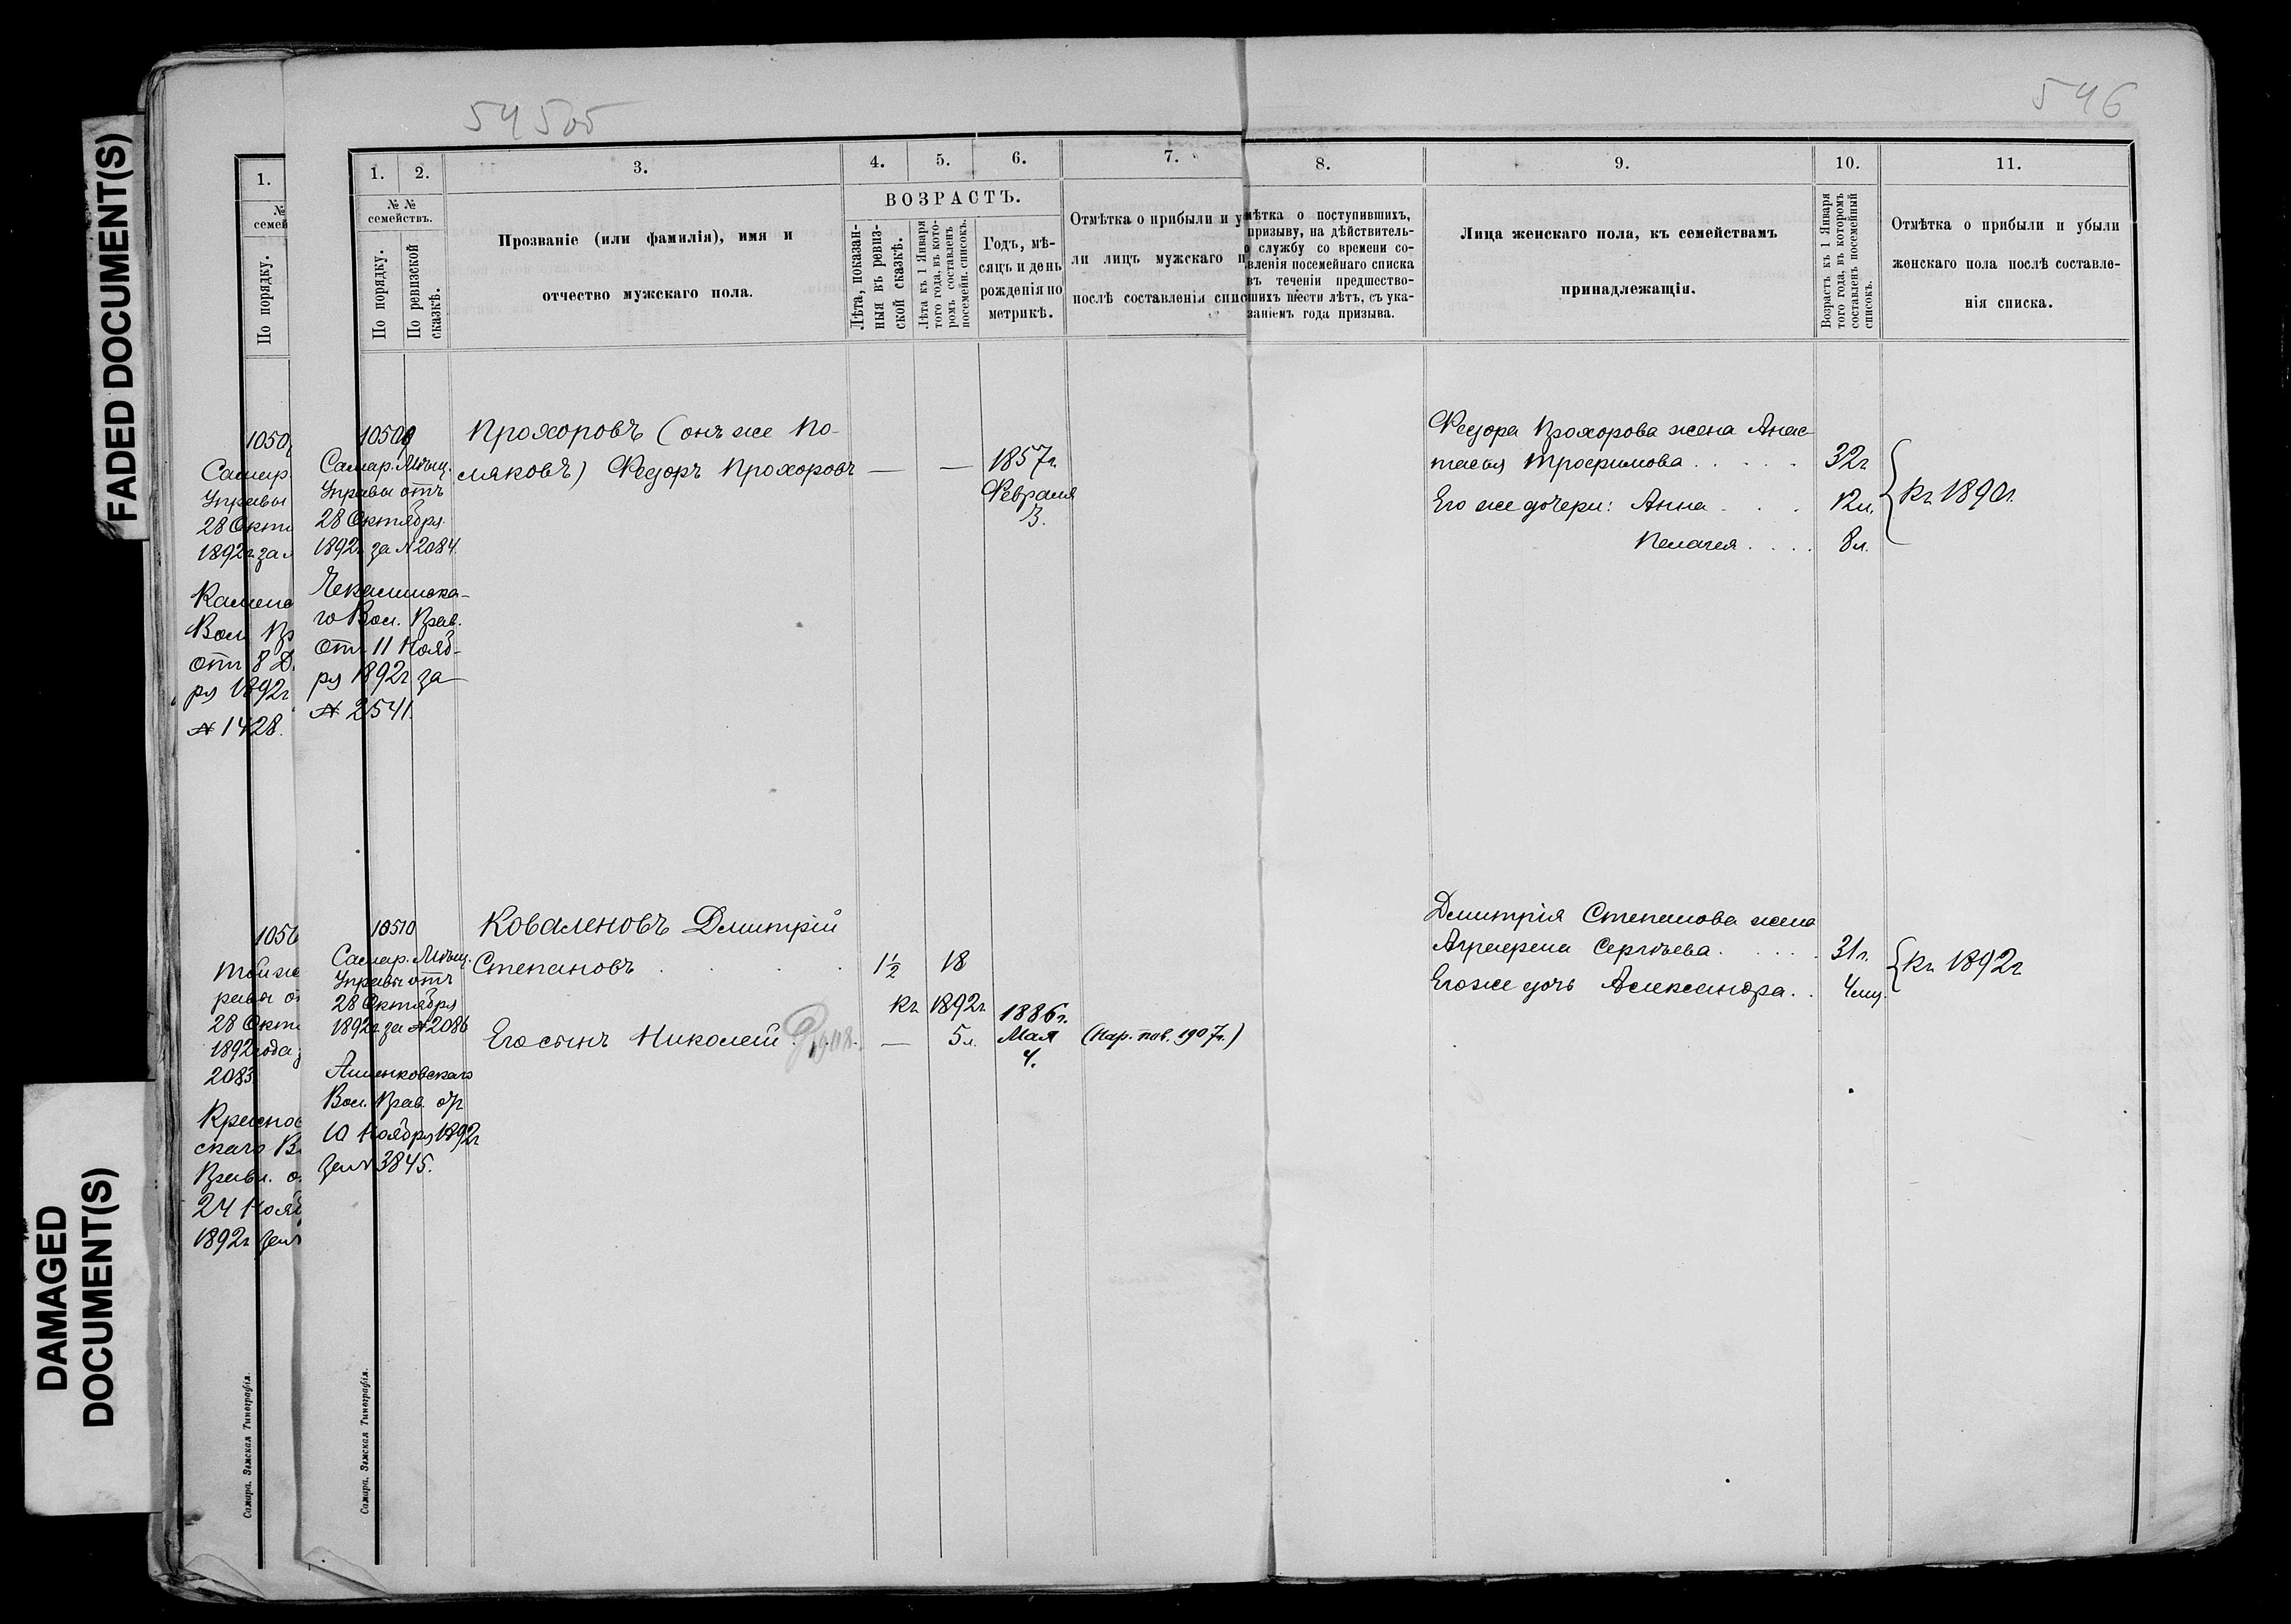 FADED DOCUMENT(S)
DAMAGED
DOCUMENT(S)
545об
546
1.
№
семей
По порядку.
1050
Самар.
Управы
28 Октя
1892г. за
Каменс
Вол. Пр
отъ 8 Д
ря 1892г
№ 1428.
той же
равы о
28 Октя
1892 года
2083
Красно
скаго В
Правл. о
24 Нояб
1892г. за №
Самара. Земская Типографія.
1. 2. 3. 4. 5. 6. 7. 8. 9. 10. 11.
№ №
семействъ.
По порядку.
По ревизской
сказкѣ.
Прозваніе (или фамилія), имя и
отчество мужскаго пола.
ВОЗРАСТЪ.
Лѣта, показан-
ныя въ ревиз-
ской сказкѣ.
Лѣта къ 1 Января
того года, въ кото-
ромъ составленъ
посемейн. списокъ.
Годъ, мѣ-
сяцъ и день
рожденія по
метрикѣ.
Отмѣтка о прибыли и у
ли лицъ мужскаго п
послѣ составленія спис
мѣтка о поступившихъ,
призыву, на дѣйствитель-
о службу со времени со-
вленія посемейнаго списка
въ теченіи предшество-
шихъ шести лѣтъ, съ ука-
заніемъ года призыва.
Лица женскаго пола, къ семействамъ
принадлежащія.
Возрастъ къ 1 Января
того года, въ которомъ
составленъ посемейный
списокъ.
Отмѣтка о прибыли и убыли
женскаго пола послѣ составле-
нія списка.
10509
Самар. Мѣщ.
Управы отъ
28 Октября
1892г. за № 2084.
Чекалинска-
го Вол. Прав.
отъ 11 Нояб-
ря 1892г. за
№ 2541.
Прохоровъ (онъ же По-
ляковъ) Федоръ Прохоровъ — — 1857г.
Февраля
3.
Федора Прохорова жена Анас-
тасья Трофимова . . . . . 32г.
Его же дочери: Анна . . . 12л.
Пелагея . . . . 8л.
къ 1890г.
10510
Самар. Мѣщ.
Управы отъ
28 Октября
1892г. за № 2086
Вол. Прав. отъ
10 Ноября 1892г
за № 3845.
Коваленовъ Дмитрій
Степановъ . . . . 1½ 18
къ 1892г.
Его сынъ Николай — 5л. 1886г.
Мая
4.
(Нар. пов. 1907г.)
Дмитрія Степанова жена
Агрефена Сергѣева . . . . . 31г.
Его же дочь Александра . . 4мц.
къ 1892г
Самара. Земская Типографія.